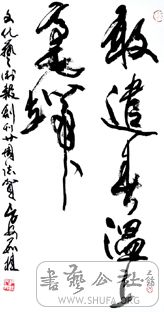 敢遣春温上
笔端
文化藝术報創刊廿周志賀
書藝公社
WWW.SHUFA.ORG